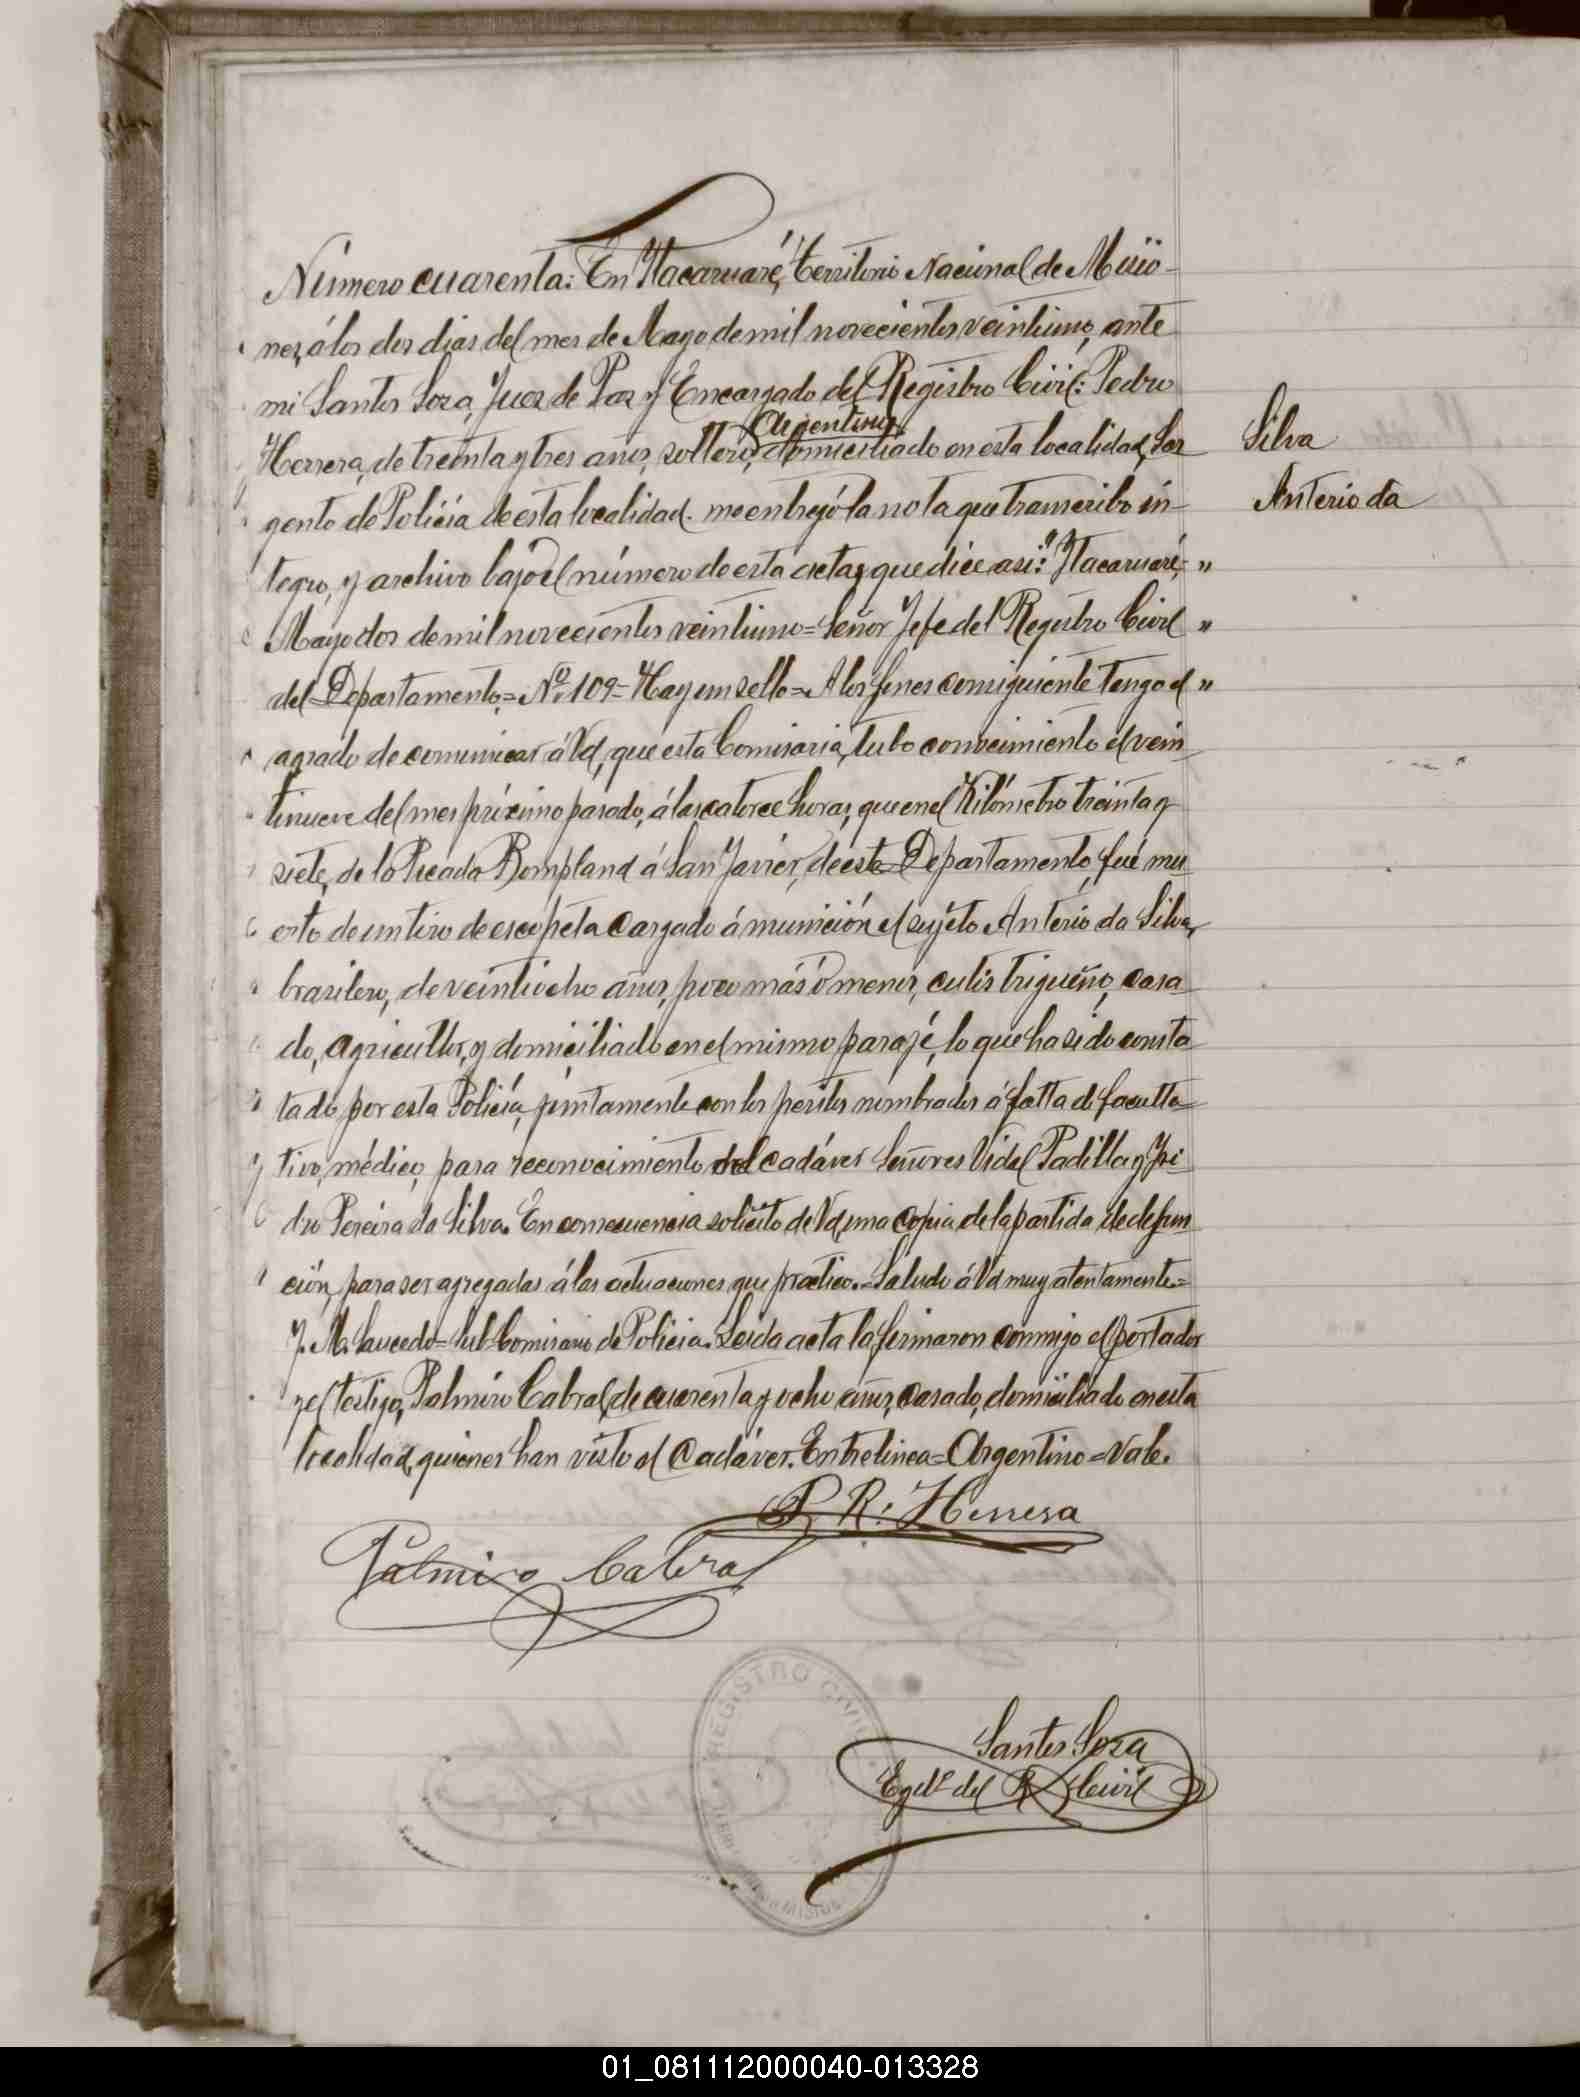 Número cuarenta: En Itacaruaré, Territorio Nacional de Misio-
nes, á los dos dias del mes de Mayo de mil novecientos veintiuno, ante
mi Santos Sosa, Juez de Paz y Encargado del Registro Civil: Pedro
Argentino
Herrera, de treinta y tres años, soltero, domiciliado en esta localidad, Sar
Silva
gento de Policía de esta localidad. me entregó la nota que transcribo ín-
Anterio da
tegro, y archivo bajo el número de esta acta, y que dice asi: "Itacaruaré, "
Mayo dos de mil novecientos veintiuno= Señor Jefe del Registro Civil "
del Departamento.= Nº 109= Hay un sello= A los fines consiguiente tengo el "
agrado de comunicar á Vd, que esta Comisaria, tubo conocimiento el vein
tinueve del mes próximo pasado, á las catorce horas, que en el Kilómetro treinta y
siete, de la Picada Bompland á San Javier, de este Departamento, fué mu
erto de un tiro de escopeta cargado á munición el sujeto Anterio da Silva,
brasilero, de veintiocho años, poco más ó menos, cutis trigueño, casa
do, agricultor, y domiciliado en el mismo paraje, lo que ha sido consta
tado por esta Policía, juntamente con los peritos nombrados á falta de faculta=
tivo, médico, para reconocimiento del cadáver Señores Vidal Padilla y Isi-
dro Pereira da Silva. En consecuencia solicito de Vd, una copia de la partida de defun
ción, para ser agregadas á las actuaciones que practico.=Saludo á Vd muy atentamente.=
J. M. Saucedo= Sub-Comisario de Policia. Leida acta la firmaron conmigo el portador
y el testigo, Palmiro Cabral, de cuarenta y ocho años, casado, domiciliado en esta
localidad, quienes han visto el Cadáver. Entrelinea=Argentino=Vale.
P. R. Herrera
Palmiro Cabral
REGISTRO CIVIL
Santos Sosa
Egdo del R. Civil
01_081112000040-013328